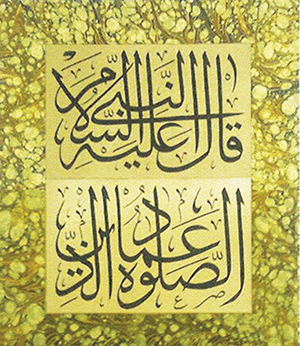 قال النبي عليه السلام
الصلوة عماد الدين